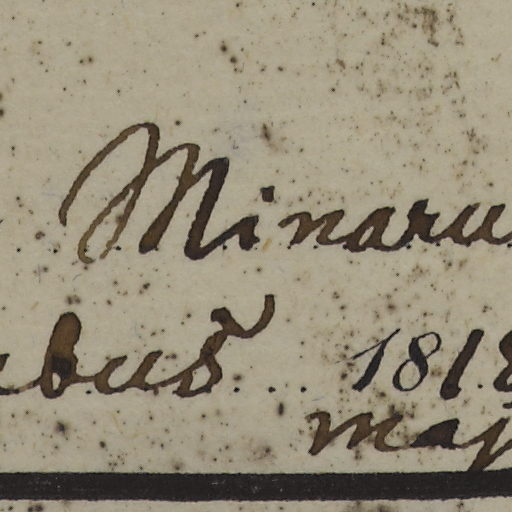 Minaru
bus 181
maj